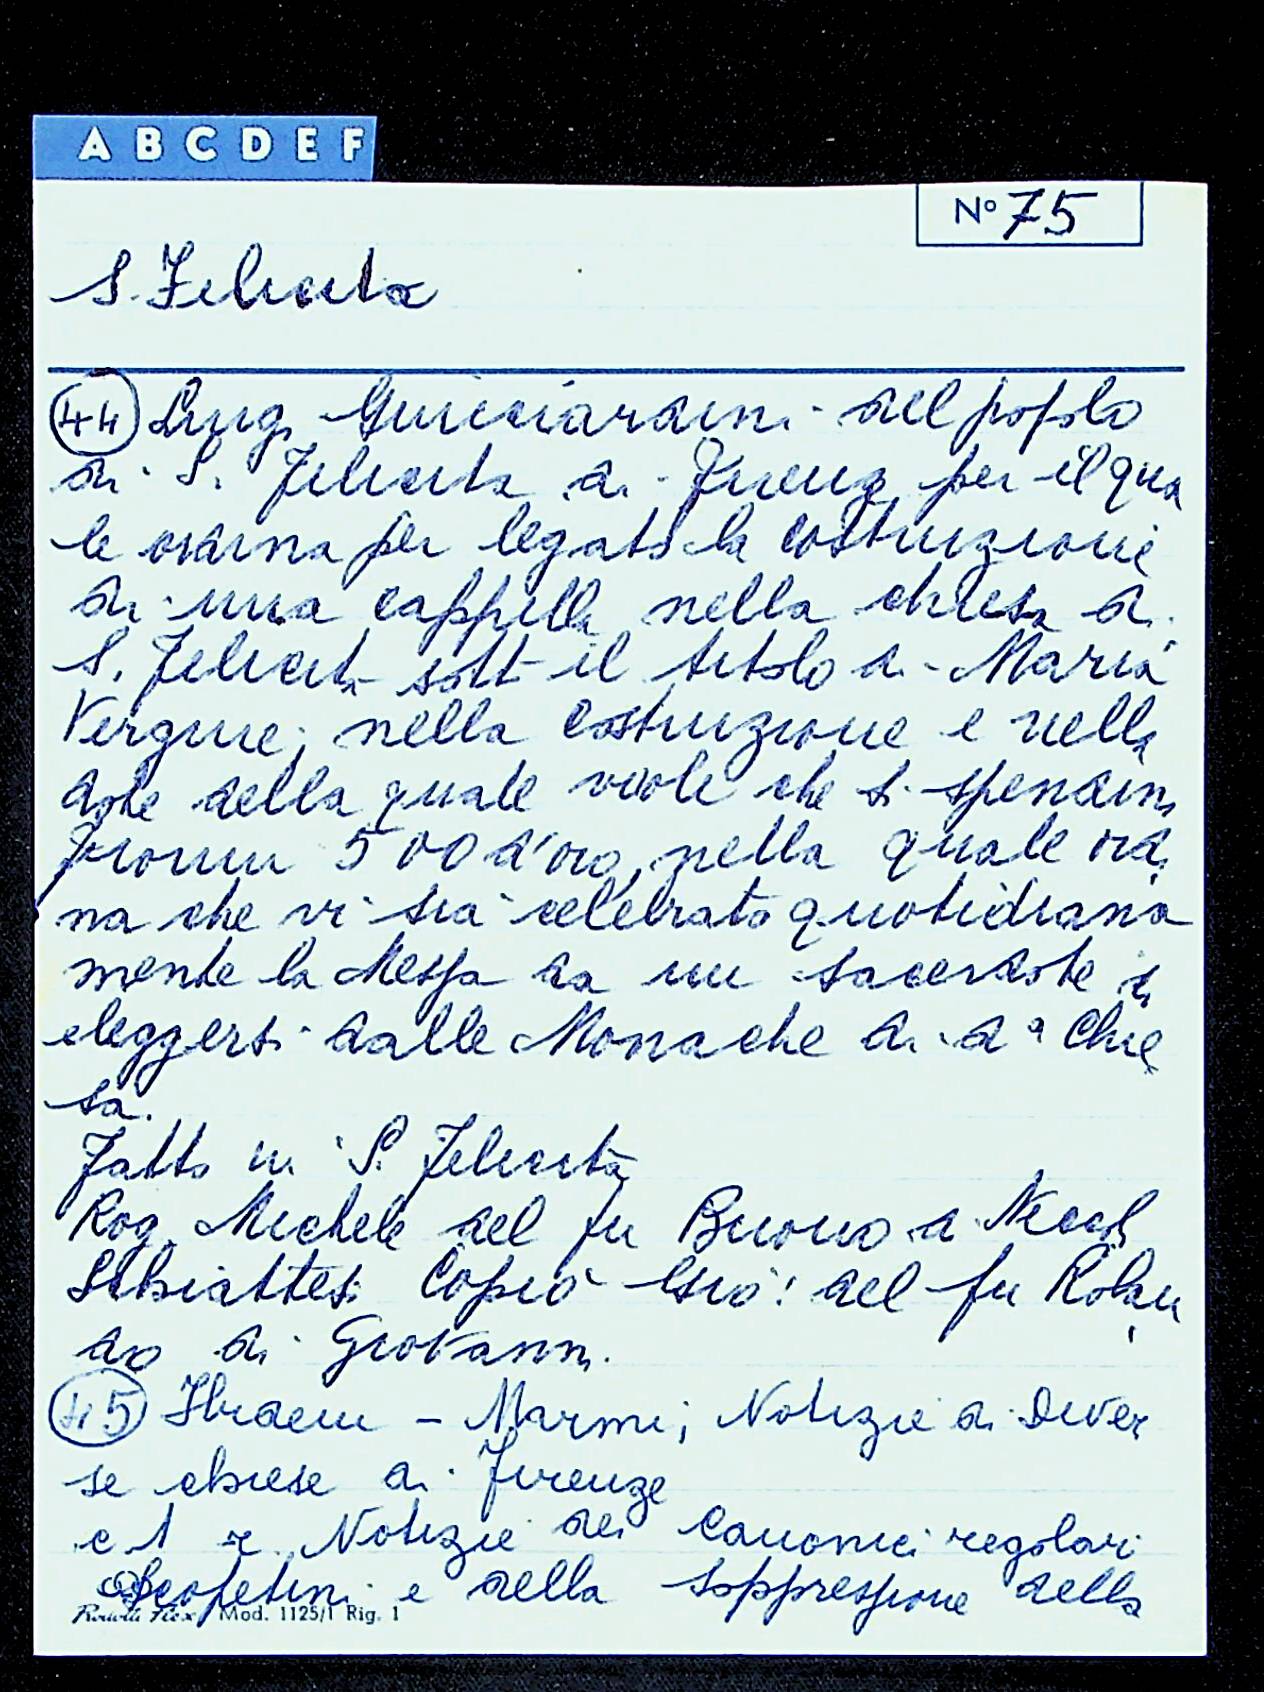 A B C D E F
N° 75
S. Felicita
44 Luigi Guicciardini del popolo
di S. Felicita di Firenze per il qua
le ordina per legato la costruzione
di una cappella nella chiesa di
S. Felicita sott il titolo di Maria
Vergine; nella costruzione e nella
dote della quale vuole che si spendino
fiorini 500 d'oro, nella quale ordi
na che vi sia celebrato quotidiana
mente la Messa da un sacerdote da
eleggersi dalle Monache di dª Chie
sa.
Fatto in S. Felicita
Rog. Michele del fu Buono di
Copiò Gio: del fu Rolan
do di Giovanni.
45 Ibidem - Marmi; Notizie di Diver
se chiese di Firenze
c 1 r. Notizie dei Canonici regolari
Scopetini e della soppressione della
Mod. 1125/1 Rig. 1